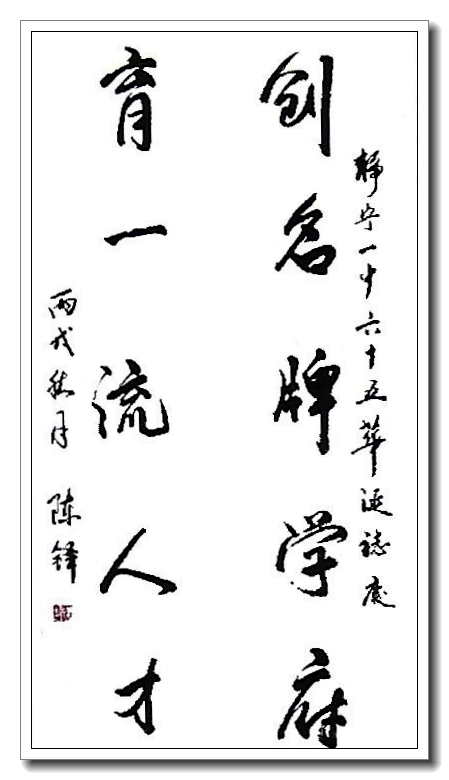 静宁一中六十五华诞志庆
创名牌学府
育一流人才
丙戌秋月 陈铎